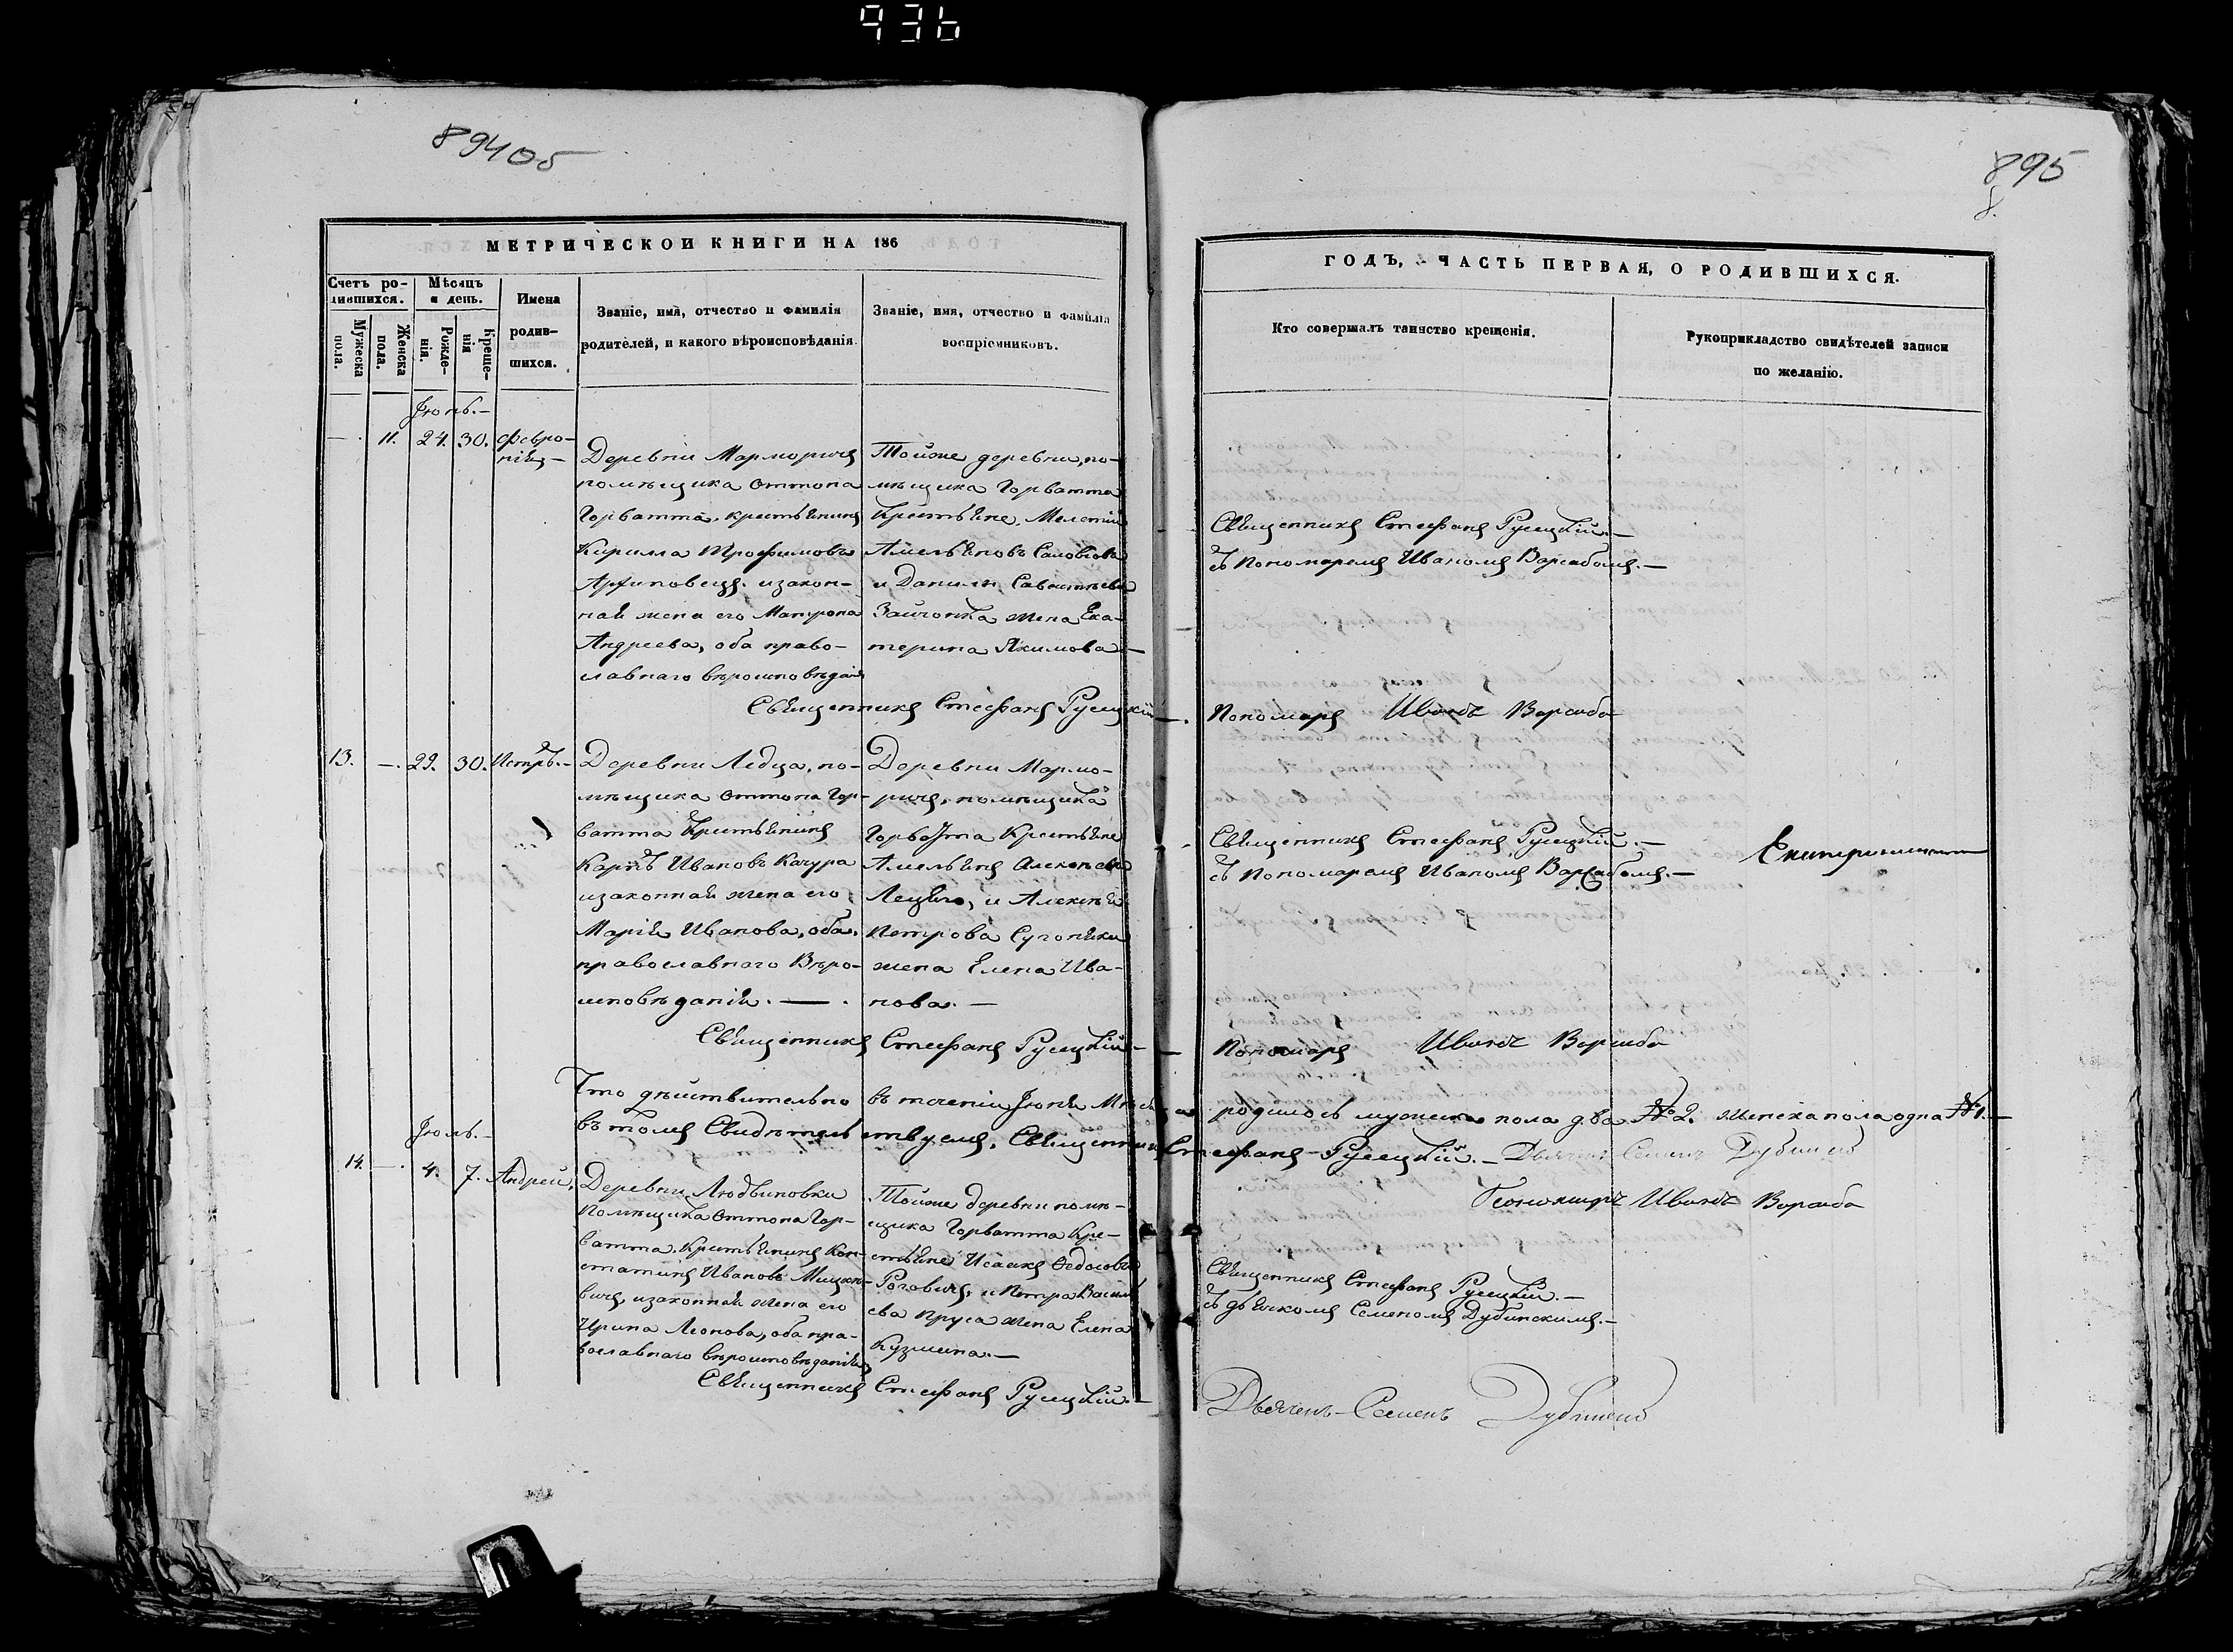 936
894об
895
8.
МЕТРИЧЕСКОЙ КНИГИ НА 186
Счетъ ро-
дившихся.
Мужеска
пола.
Женска
пола.
Мѣсяцъ
и день.
Рожде-
нія.
Креще-
нія
Имена
родив-
шихся.
Званіе, имя, отчество и фамилія
родителей, и какого вѣроисповѣданія.
Званіе, имя, отчество и фамилія
воспріемниковъ.
ГОДЪ, ЧАСТЬ ПЕРВАЯ, О РОДИВШИХСЯ.
Кто совершалъ таинство крещенія.
Рукоприкладство свидѣтелей записи
по желанію.
Іюнь.
— 11. 24. 30. Февро-
нія
Деревни Марморичъ
помѣщика Оттона
Горватта, крестьянинъ
Кирила Трофимовъ
и закон-
ная жена его Матрона
Андреева, оба право-
славнаго вѣроисповѣданія
Тойже деревни, по-
мѣщика Горватта
Крестьяне, Мелетій
Амельяновъ
и Данилы
жена Ека-
терина Якимова
Священникъ Стефанъ Русецкій
съ Пономаремъ Иваномъ Варсабомъ.
Священникъ Стефанъ Русецкій
Пономаръ Иванъ Варсаба
13. — 29. 30. Петръ.
Деревни Ледца, по-
мѣщика Оттона Гор-
ватта Крестьянинъ
Карпъ Ивановъ Качура
и законная жена его
Марія Иванова, оба
православнаго Вѣро-
исповѣданія.
Деревни Мармо-
ричъ, помѣщика
Горватта Крестьяне
Амельянъ
и Алексѣя
Петрова
жена Елена Ива-
нова.
Священникъ Стефанъ Русецкій.
съ Пономаремъ Иваномъ Варсабомъ.
Священникъ Стефанъ Русецкій
Пономаръ Иванъ Варсаба
Что дѣйствительно въ теченіи Іюня Мѣсяца родилось мужеска пола два № 2. женска пола одна № 1.
въ томъ Свидѣтельствуемъ, Священникъ Стефанъ Русецкій. Дьячекъ Семенъ Дубинскій
Пономаръ Иванъ Варсаба
Іюль.
14. — 4. 7. Андрей.
Деревни Людвиновки
Помѣщика Оттона Гор-
ватта, Крестьянинъ Кон-
стантинъ Ивановъ
и законная жена его
Ирина Леонова, оба пра-
вославнаго вѣроисповѣданія
Тойже деревни помѣ-
щика Горватта Кре-
стьяне Исаакъ Федосовъ
Роговичъ, и Петра Василь
ева Пруса жена Елена
Кузмина.
Священникъ Стефанъ Русецкій.
съ дьячкомъ Семеномъ Дубинскимъ.
Священникъ Стефанъ Русецкій.
Дьячекъ Семенъ Дубинскій